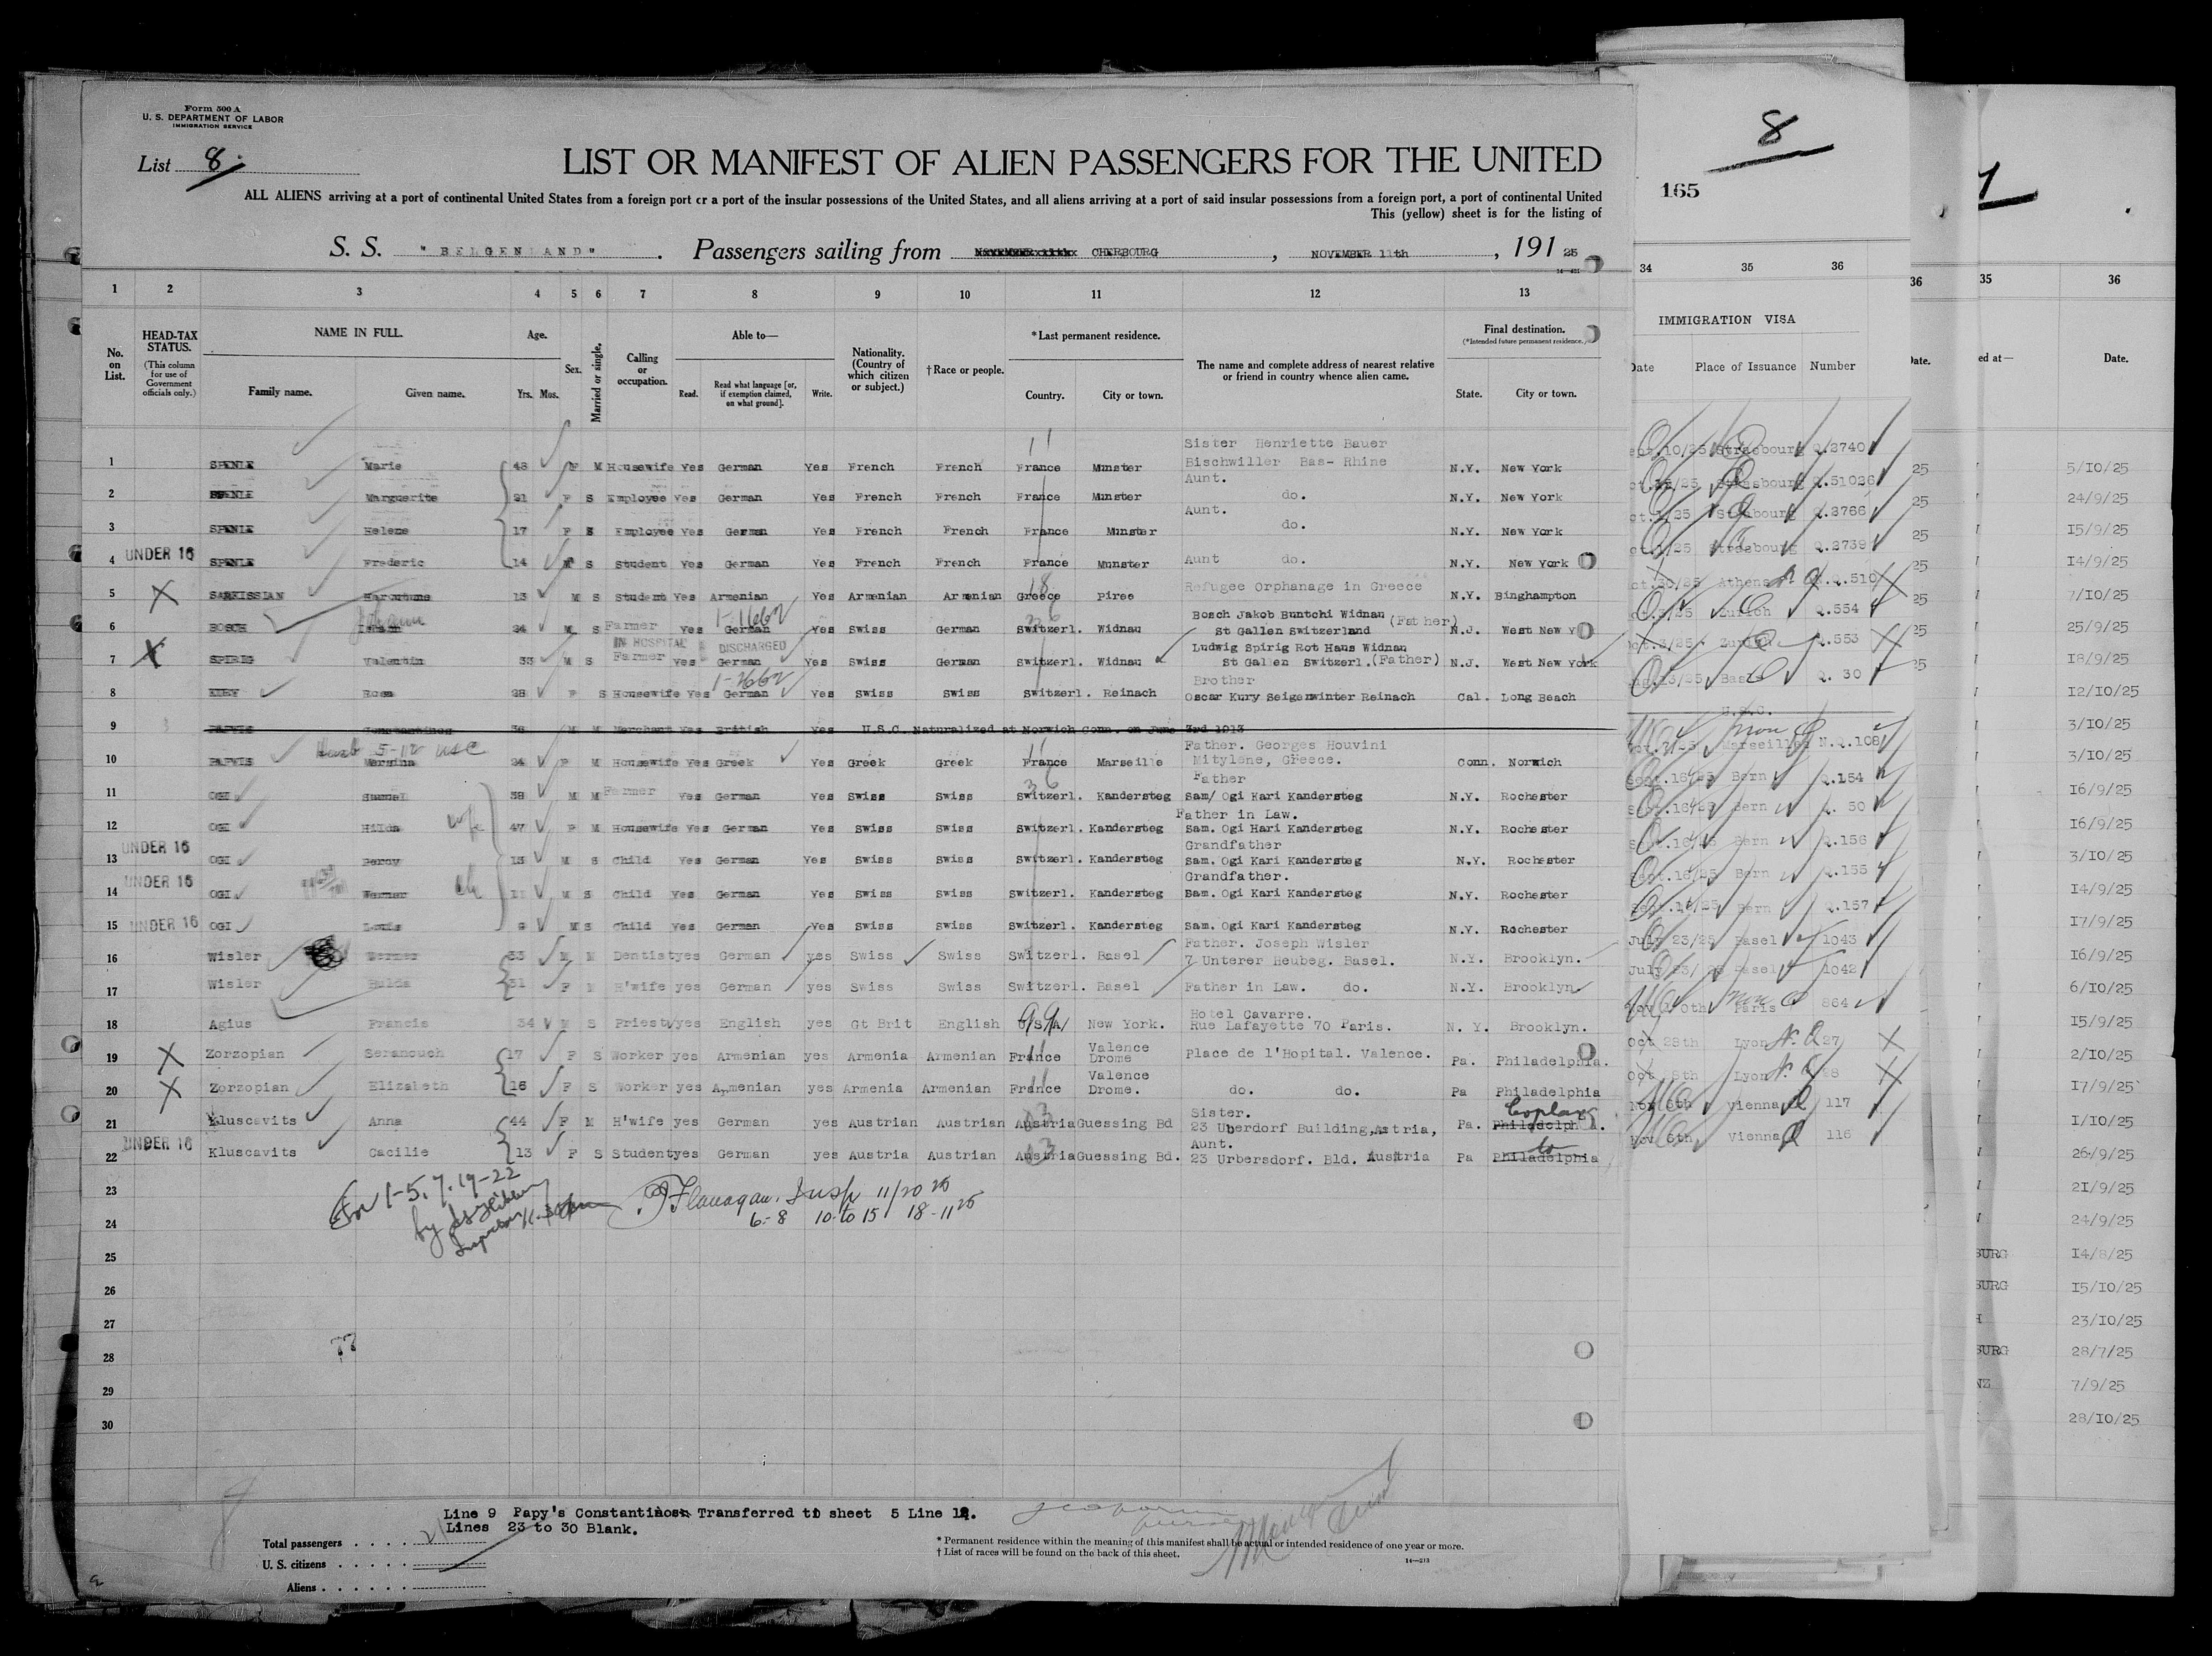 Form 500 A
U. S. DEPARTMENT OF LABOR
IMMIGRATION SERVICE
List 8
LIST OR MANIFEST OF ALIEN PASSENGERS FOR THE UNITED
ALL ALIENS arriving at a port of continental United States from a foreign port or a port of the insular possessions of the United States, and all aliens arriving at a port of said insular possessions from a foreign port, a port of continental United
This (yellow) sheet is for the listing of
S. S. "BELGENLAND". Passengers sailing from CHERBOURG, NOVEMBER 11th, 191 25
1 2 3 4 5 6 7 8 9 10 11 12 13
No. on List.
HEAD-TAX STATUS.
(This column for use of Government officials only.)
NAME IN FULL.
Family name. Given name.
Age.
Yrs. Mos.
Sex.
Married or single.
Calling or occupation.
Able to—
Read. Read what language [or, if exemption claimed, on what ground]. Write.
Nationality. (Country of which citizen or subject.)
†Race or people.
*Last permanent residence.
Country. City or town.
The name and complete address of nearest relative or friend in country whence alien came.
Final destination.
(*Intended future permanent residence.)
State. City or town.
Sister Henriette Bauer
1 SPENLE Marie 48 F M Housewife Yes German Yes French French France Munster Bischwiller Bas- Rhine N.Y. New York
Aunt.
2 SPENLE Marguerite 21 F S Employee Yes German Yes French French France Munster do. N.Y. New York
Aunt.
3 SPENLE Helene 17 F S Employee Yes German Yes French French France Munster do. N.Y. New York
4 UNDER 16 SPENLE Frederic 14 M S Student Yes German Yes French French France Munster Aunt do. N.Y. New York
5 SARKISSIAN Haroutune 13 M S Student Yes Armenian Yes Armenian Armenian Greece Piree Refugee Orphanage in Greece N.Y. Binghampton
Bosch Jakob Buntchi Widnau (Father)
6 BOSCH Johann 24 M S Farmer Yes German Yes Swiss German Switzerl. Widnau St Gallen Switzerland N.J. West New Y
IN HOSPITAL DISCHARGED
Ludwig Spirig Rot Hans Widnau
7 SPIRIG Valentin 33 M S Farmer Yes German Yes Swiss German Switzerl. Widnau St Gallen Switzerl.(Father) N.J. West New York
Brother
8 Rosa 28 F S Housewife Yes German Yes Swiss Swiss Switzerl. Reinach Oscar Kury Seigenwinter Reinach Cal. Long Beach
9 PAPWIS Constantinos 36 M M Merchant Yes British Yes U.S.C. Naturalized at Norwich Conn. on June 3rd 1913
Father. Georges Houvini
10 PAPWIS Mersina 24 F M Housewife Yes Greek Yes Greek Greek France Marseille Mitylene, Greece. Conn. Norwich
Father
11 OGI Samuel 38 M M Farmer Yes German Yes Swiss Swiss Switzerl. Kandersteg Sam/ Ogi Kari Kandersteg N.Y. Rochester
Father in Law.
12 OGI Hilda 47 F M Housewife Yes German Yes Swiss Swiss Switzerl. Kandersteg Sam. Ogi Hari Kandersteg N.Y. Rochester
Grandfather
13 UNDER 16 OGI Percy 15 M S Child Yes German Yes Swiss Swiss Switzerl. Kandersteg Sam. Ogi Kari Kandersteg N.Y. Rochester
Grandfather.
14 UNDER 16 OGI Werner 11 M S Child Yes German Yes Swiss Swiss Switzerl. Kandersteg Sam. Ogi Kari Kandersteg N.Y. Rochester
15 UNDER 16 OGI Louis 9 M S Child Yes German Yes Swiss Swiss Switzerl. Kandersteg Sam. Ogi Kari Kandersteg N.Y. Rochester
Father. Joseph Wisler
16 Wisler Werner 33 M M Dentist yes German yes Swiss Swiss Switzerl. Basel 7 Unterer Heubeg. Basel. N.Y. Brooklyn.
17 Wisler Hulda 31 F M H'wife yes German yes Swiss Swiss Switzerl. Basel Father in Law. do. N.Y. Brooklyn
Hotel Cavarre.
18 Agius Francis 34 M S Priest yes English yes Gt Brit English USA New York. Rue Lafayette 70 Paris. N. Y. Brooklyn.
19 Zorzopian Seranouch 17 F S Worker yes Armenian yes Armenia Armenian France Valence Drome Place de l'Hopital. Valence. Pa. Philadelphia.
20 Zorzopian Elizabeth 16 F S Worker yes Armenian yes Armenia Armenian France Valence Drome. do. do. Pa Philadelphia
Sister. Coplay
21 Kluscavits Anna 44 F M H'wife yes German yes Austrian Austrian Austria Guessing Bd 23 Uberdorf Building, Astria, Pa. Philadelph A.
Aunt. to
22 UNDER 16 Kluscavits Cacilie 13 F S Student yes German yes Austria Austrian Austria Guessing Bd. 23 Urbersdorf. Bld. Austria Pa Philadelphia
23
For 1-5, 7, 19-22
Flanagan. Insp 11/20 25
24
6-8 10 to 15 18-11 25
25
26
27
28
29
30
Line 9 Papy's Constantinos Transferred to sheet 5 Line 12.
Lines 23 to 30 Blank.
Total passengers 21
U. S. citizens
Aliens
* Permanent residence within the meaning of this manifest shall be actual or intended residence of one year or more.
† List of races will be found on the back of this sheet.
14—213
8
165
34 35 36
IMMIGRATION VISA
Date Place of Issuance Number
Strasbourg Q.3740
Strasbourg Q.51026
Strasbourg Q.3766
Strasbourg Q.2739
Athens N.Q.510
Zurich Q.554
Zurich Q.553
Basel Q. 30
U.S.C.
Marseilles N.Q.108
Sept.16/25 Bern Q.154
Sept.16/25 Bern Q. 50
Sept.16/25 Bern Q.156
Sept.16/25 Bern Q.155
Bern Q.157
July 23/25 Basel 1043
July 23/25 Basel 1042
Nov 10th Paris 864
Oct 28th Lyon N. Q 27
Oct 28th Lyon N. Q 28
Nov 6th Vienna Q 117
Nov 6th Vienna Q 116
36
Date.
35 36
ed at— Date.
5/10/25
24/9/25
15/9/25
14/9/25
7/10/25
25/9/25
18/9/25
12/10/25
3/10/25
3/10/25
16/9/25
16/9/25
3/10/25
14/9/25
17/9/25
16/9/25
6/10/25
15/9/25
2/10/25
17/9/25
1/10/25
26/9/25
21/9/25
24/9/25
BURG 14/8/25
BURG 15/10/25
23/10/25
BURG 28/7/25
NZ 7/9/25
28/10/25